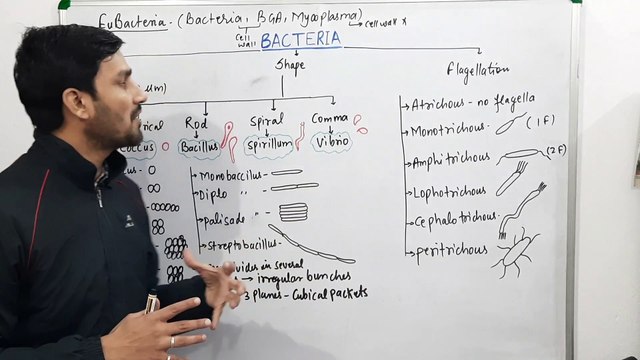 EuBacteria - (Bacteria, BGA, Mycoplasma)
cell wall
cell wall x
BACTERIA
Shape
Flagellation
Rod
Spiral
Comma
Bacillus
Spirillum
Vibrio
Monobaccilus -
Diplo " -
palisade " -
Streptobacillus -
in several
→ irregular bunches
3 planes - Cubical packets
Atrichous - no flagella
Monotrichous - (1F)
Amphitrichous (2F)
Lophotrichous
Cephalotrichous
peritrichous